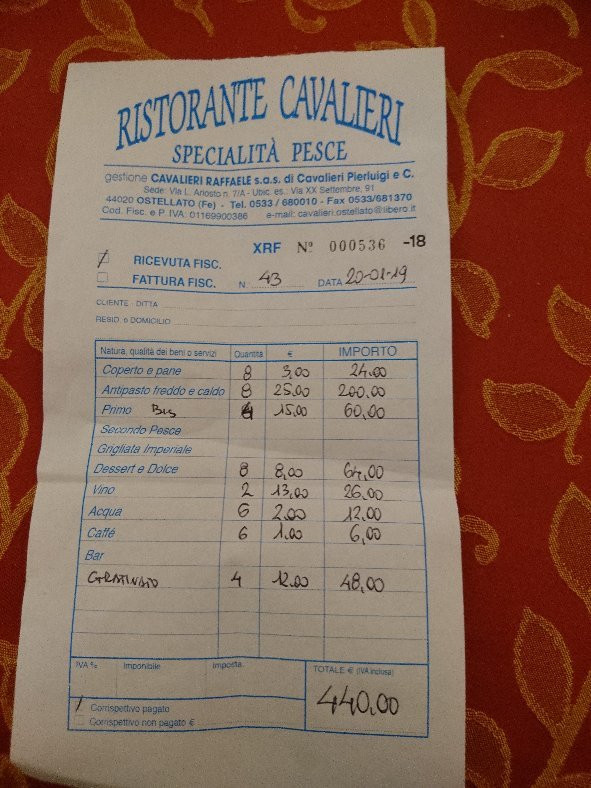 RISTORANTE CAVALIERI
SPECIALITÀ PESCE
gestione CAVALIERI RAFFAELE s.a.s. di Cavalieri Pierluigi e C.
Sede: Via L. Ariosto n. 7/A - Ubic. es. Via XX Settembre, 91
44020 OSTELLATO (Fe) - Tel. 0533 / 680010 - Fax 0533/681370
Cod. Fisc. e P. IVA: 01169900386 e-mail: cavalieri.ostellato@libero.it
XRF Nº 000536 -18
RICEVUTA FISC.
FATTURA FISC. N 43 DATA 20-01-19
CLIENTE - DITTA
RESID. o DOMICILIO
Natura, qualità dei beni o servizi Quantità € IMPORTO
Coperto e pane 8 3,00 24,00
Antipasto freddo e caldo 8 25,00 200,00
Primo Bis 4 15,00 60,00
Secondo Pesce
Grigliata Imperiale
Dessert e Dolce 8 8,00 64,00
Vino 2 13,00 26,00
Acqua 6 2,00 12,00
Caffé 6 1,00 6,00
Bar
GRATINATO 4 12,00 48,00
IVA % Imponibile Imposta TOTALE € (IVA inclusa)
440,00
Corrispettivo pagato
Corrispettivo non pagato €